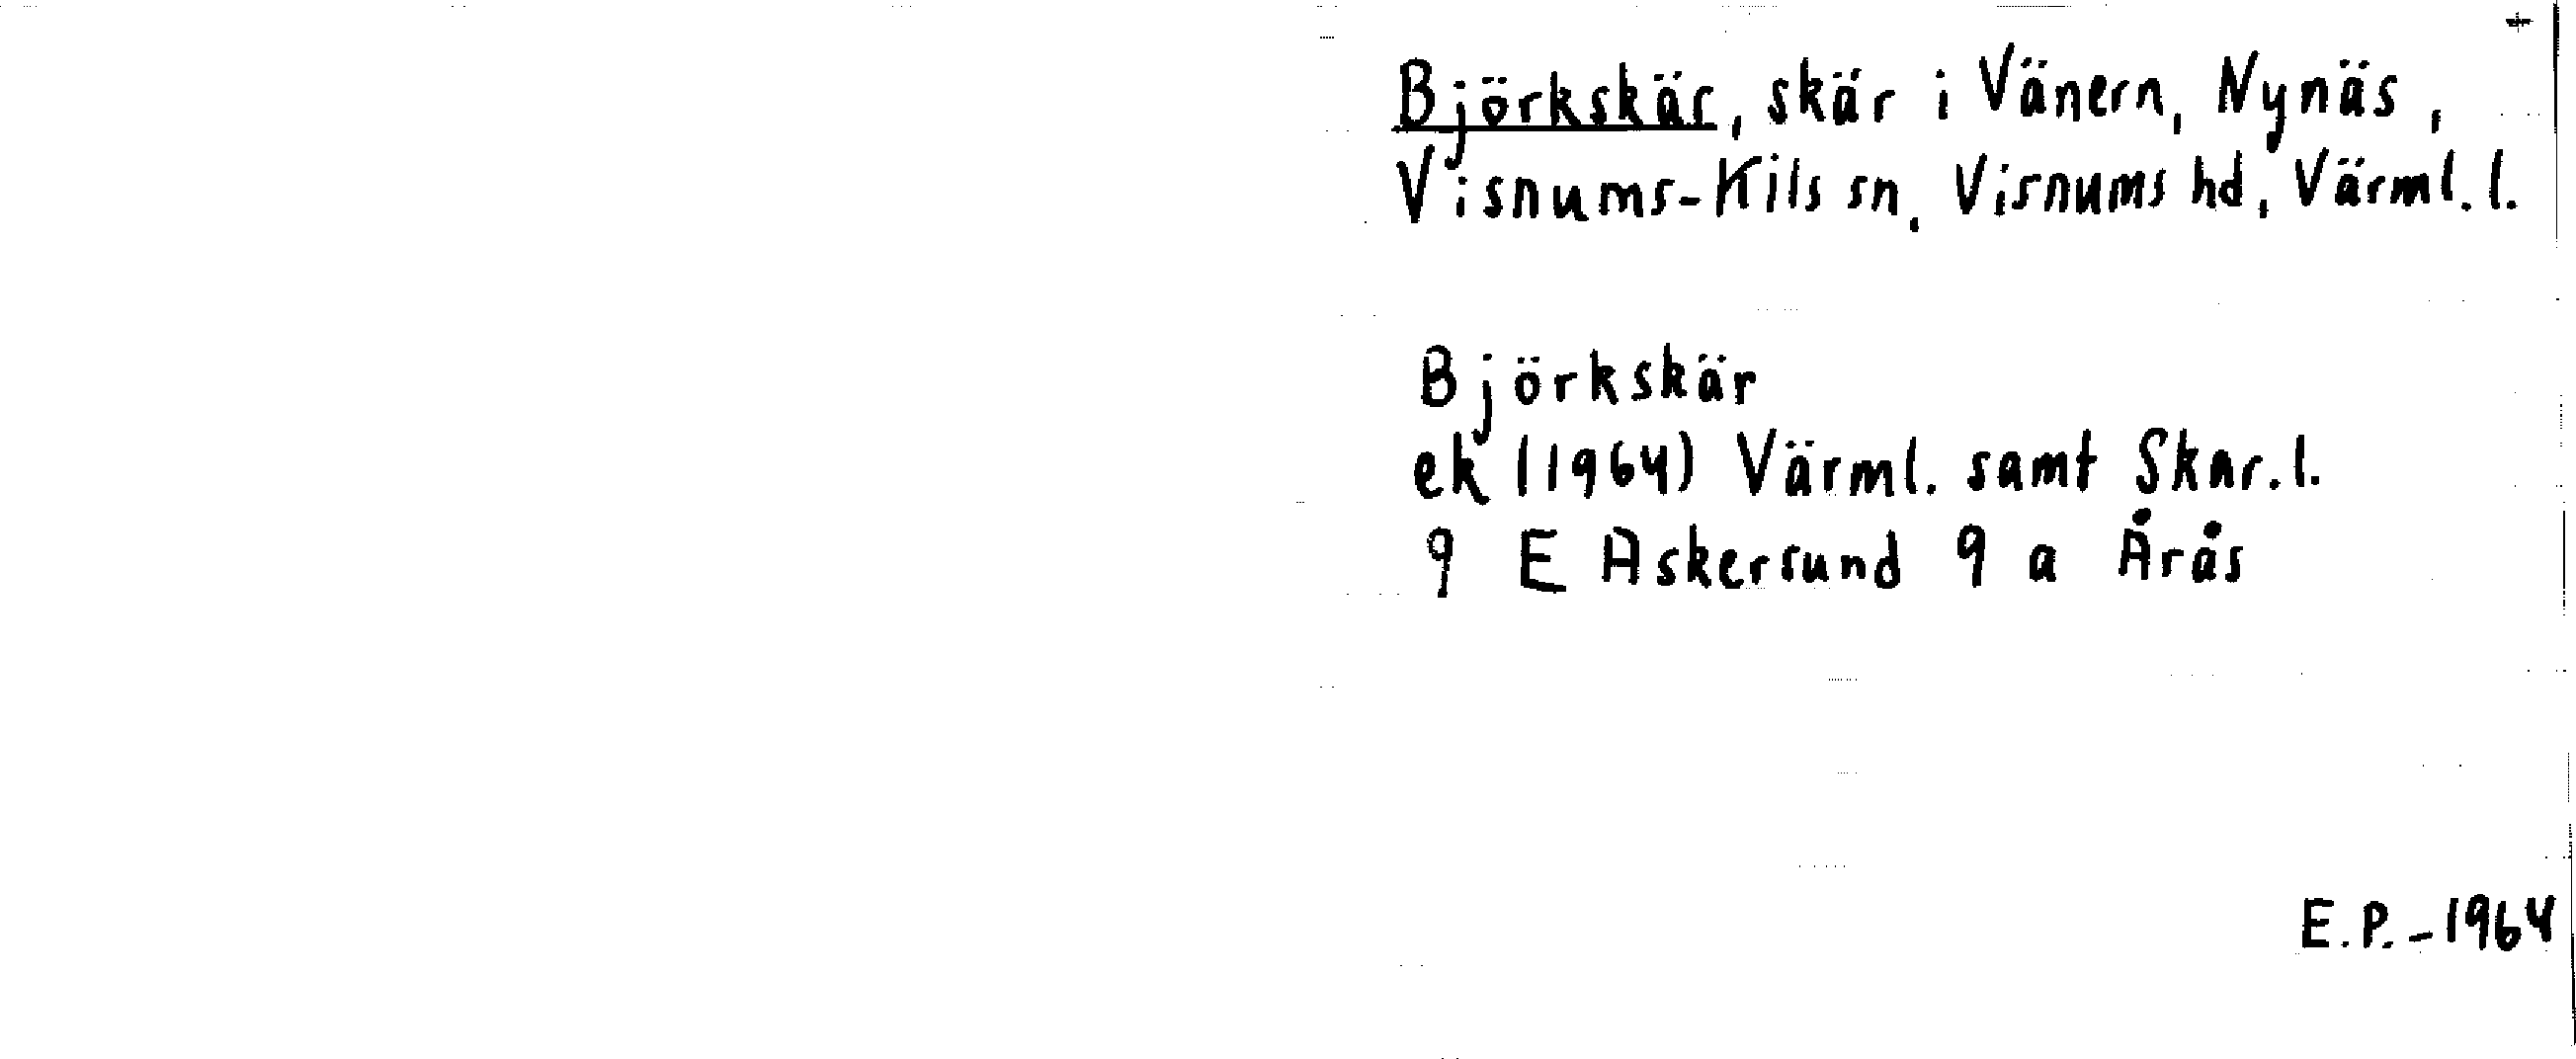 Björkskär, skär i Vänern, Nynäs,
Visnums-Kils sn, Visnums hd, Värml. l.
Björkskär
ek (1964) Värml. samt Skar. l.
9 E Askersund 9 a Årås
E.P. - 1964